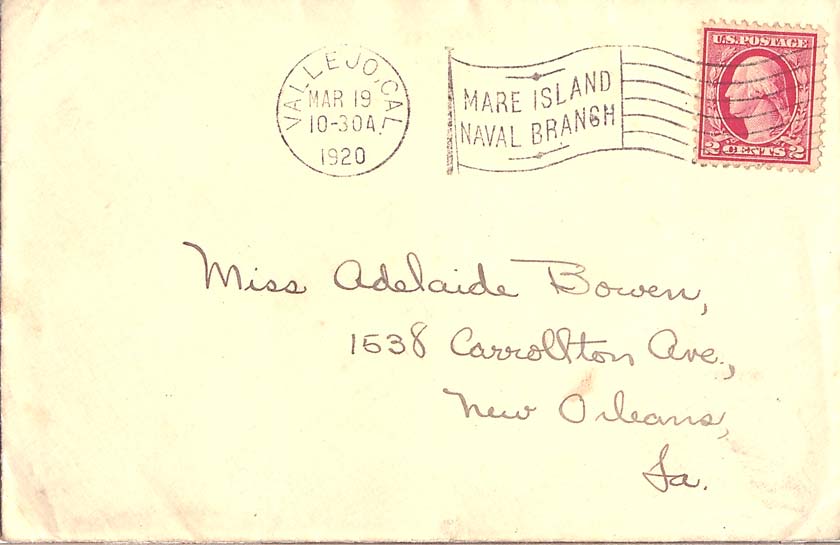 VALLEJO, CAL.
MAR 19
10-30A.
1920
MARE ISLAND
NAVAL BRANCH
U.S. POSTAGE
2 CENTS 2
Miss Adelaide Bowen,
1538 Carrollton Ave.,
New Orleans,
La.